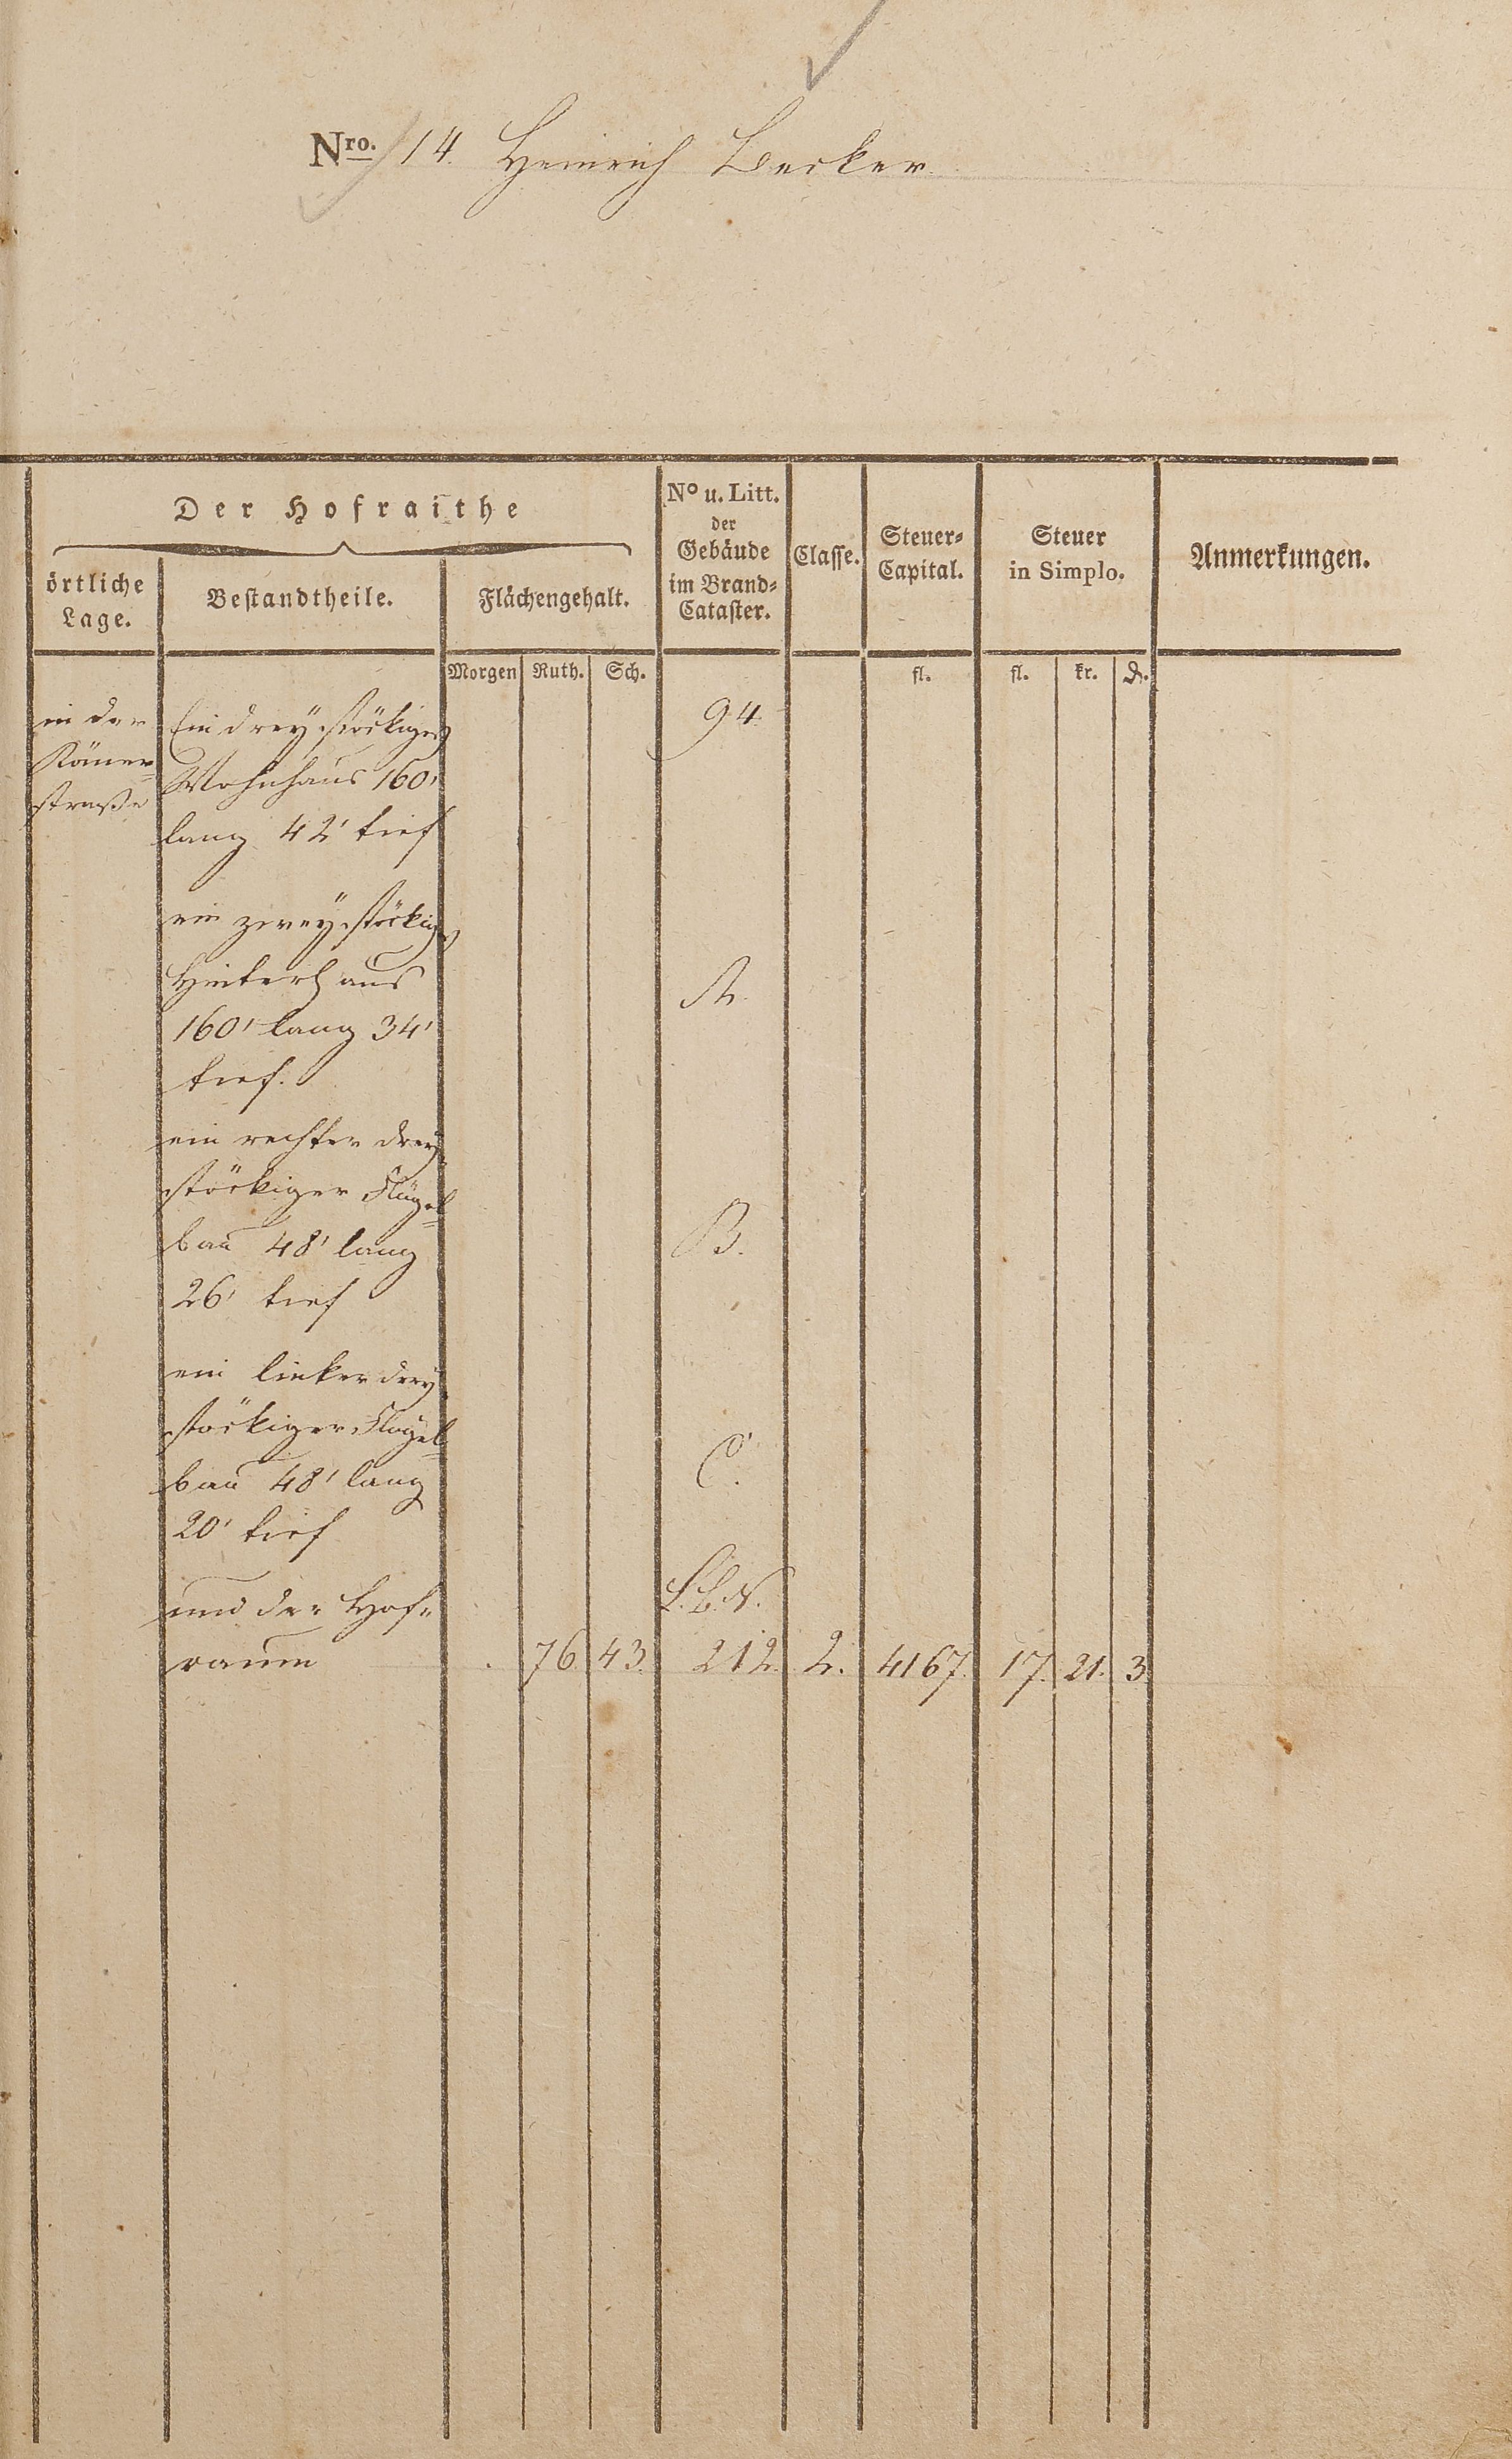 Nro. 14. Heinrich Becker
Der Hofraithe
örtliche Lage.
Bestandtheile.
Flächengehalt.
No u. Litt.
der
Gebäude
im Brand-
Cataster.
Classe.
Steuer-
Capital.
Steuer
in Simplo.
Anmerkungen.
Morgen Ruth. Sch. fl. fl. kr. d.
in der
Römer-
straße
Ein dreystöckiges 94.
Wohnhaus 160'
lang 42' tief
ein zweystöckiges
Hinterhaus A.
160' lang 34'
tief.
ein rechter drey
stöckiger Flügel-
bau 48' lang B.
26' tief
ein linker drey
stöckiger Flügel-
bau 48' lang C.
20' tief
und der Hof- L.B.N.
raum 76. 43. 212. 2. 4167. 17. 21. 3.